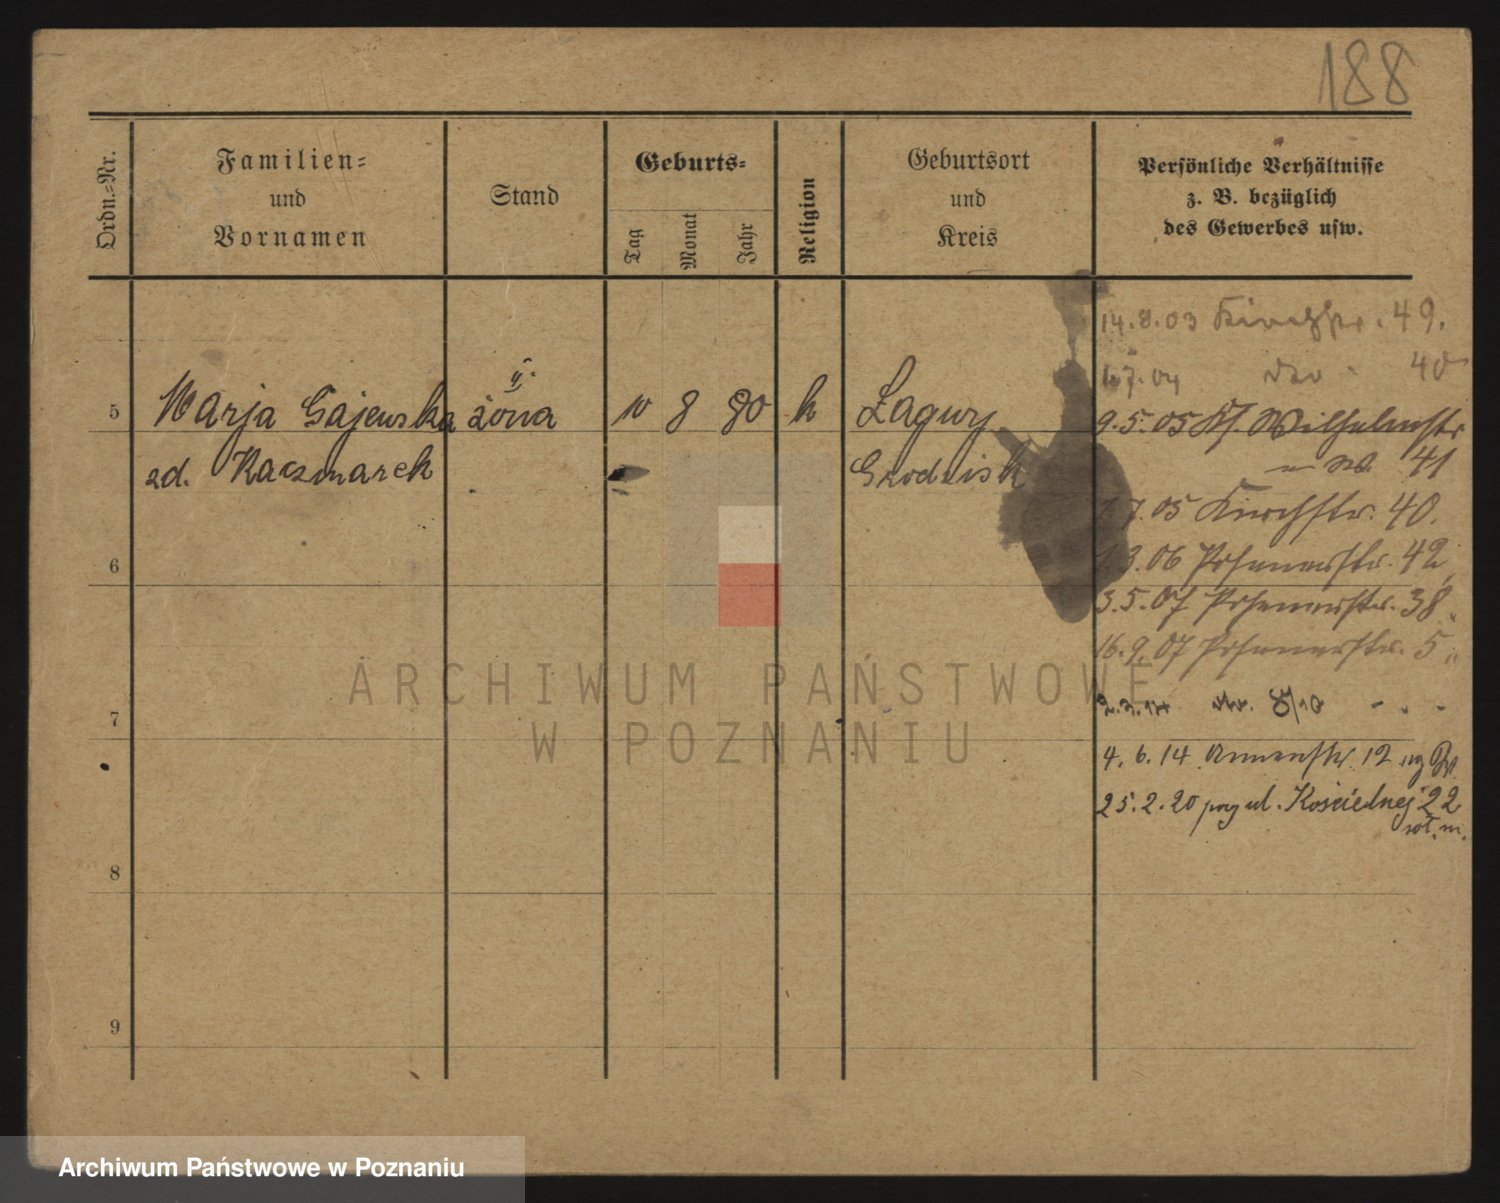 188
Ordn.-Nr.
Familien-
und
Vornamen
Stand
Geburts-
Tag
Monat
Jahr
Religion
Geburtsort
und
Kreis
Persönliche Verhältnisse
z. B. bezüglich
des Gewerbes usw.
14.8.03 Kirchstr. 49.
1.7.04 dto 40
II.
5 Marja Gajewska żona 10 8 80 k Łagwy
zd. Kaczmarek Grodzisk
9.5.05 Wilhelmstr
41
7.05 Kirchstr. 40.
3.06 Posenerstr. 42
3.5.07 Posenerstr. 38.
16.9.07 Posenerstr. 5
8/10
4.6.14 12
25.2.20 ul. Kościelnej 22
6
7
8
9
ARCHIWUM PAŃSTWOWE
W POZNANIU
Archiwum Państwowe w Poznaniu